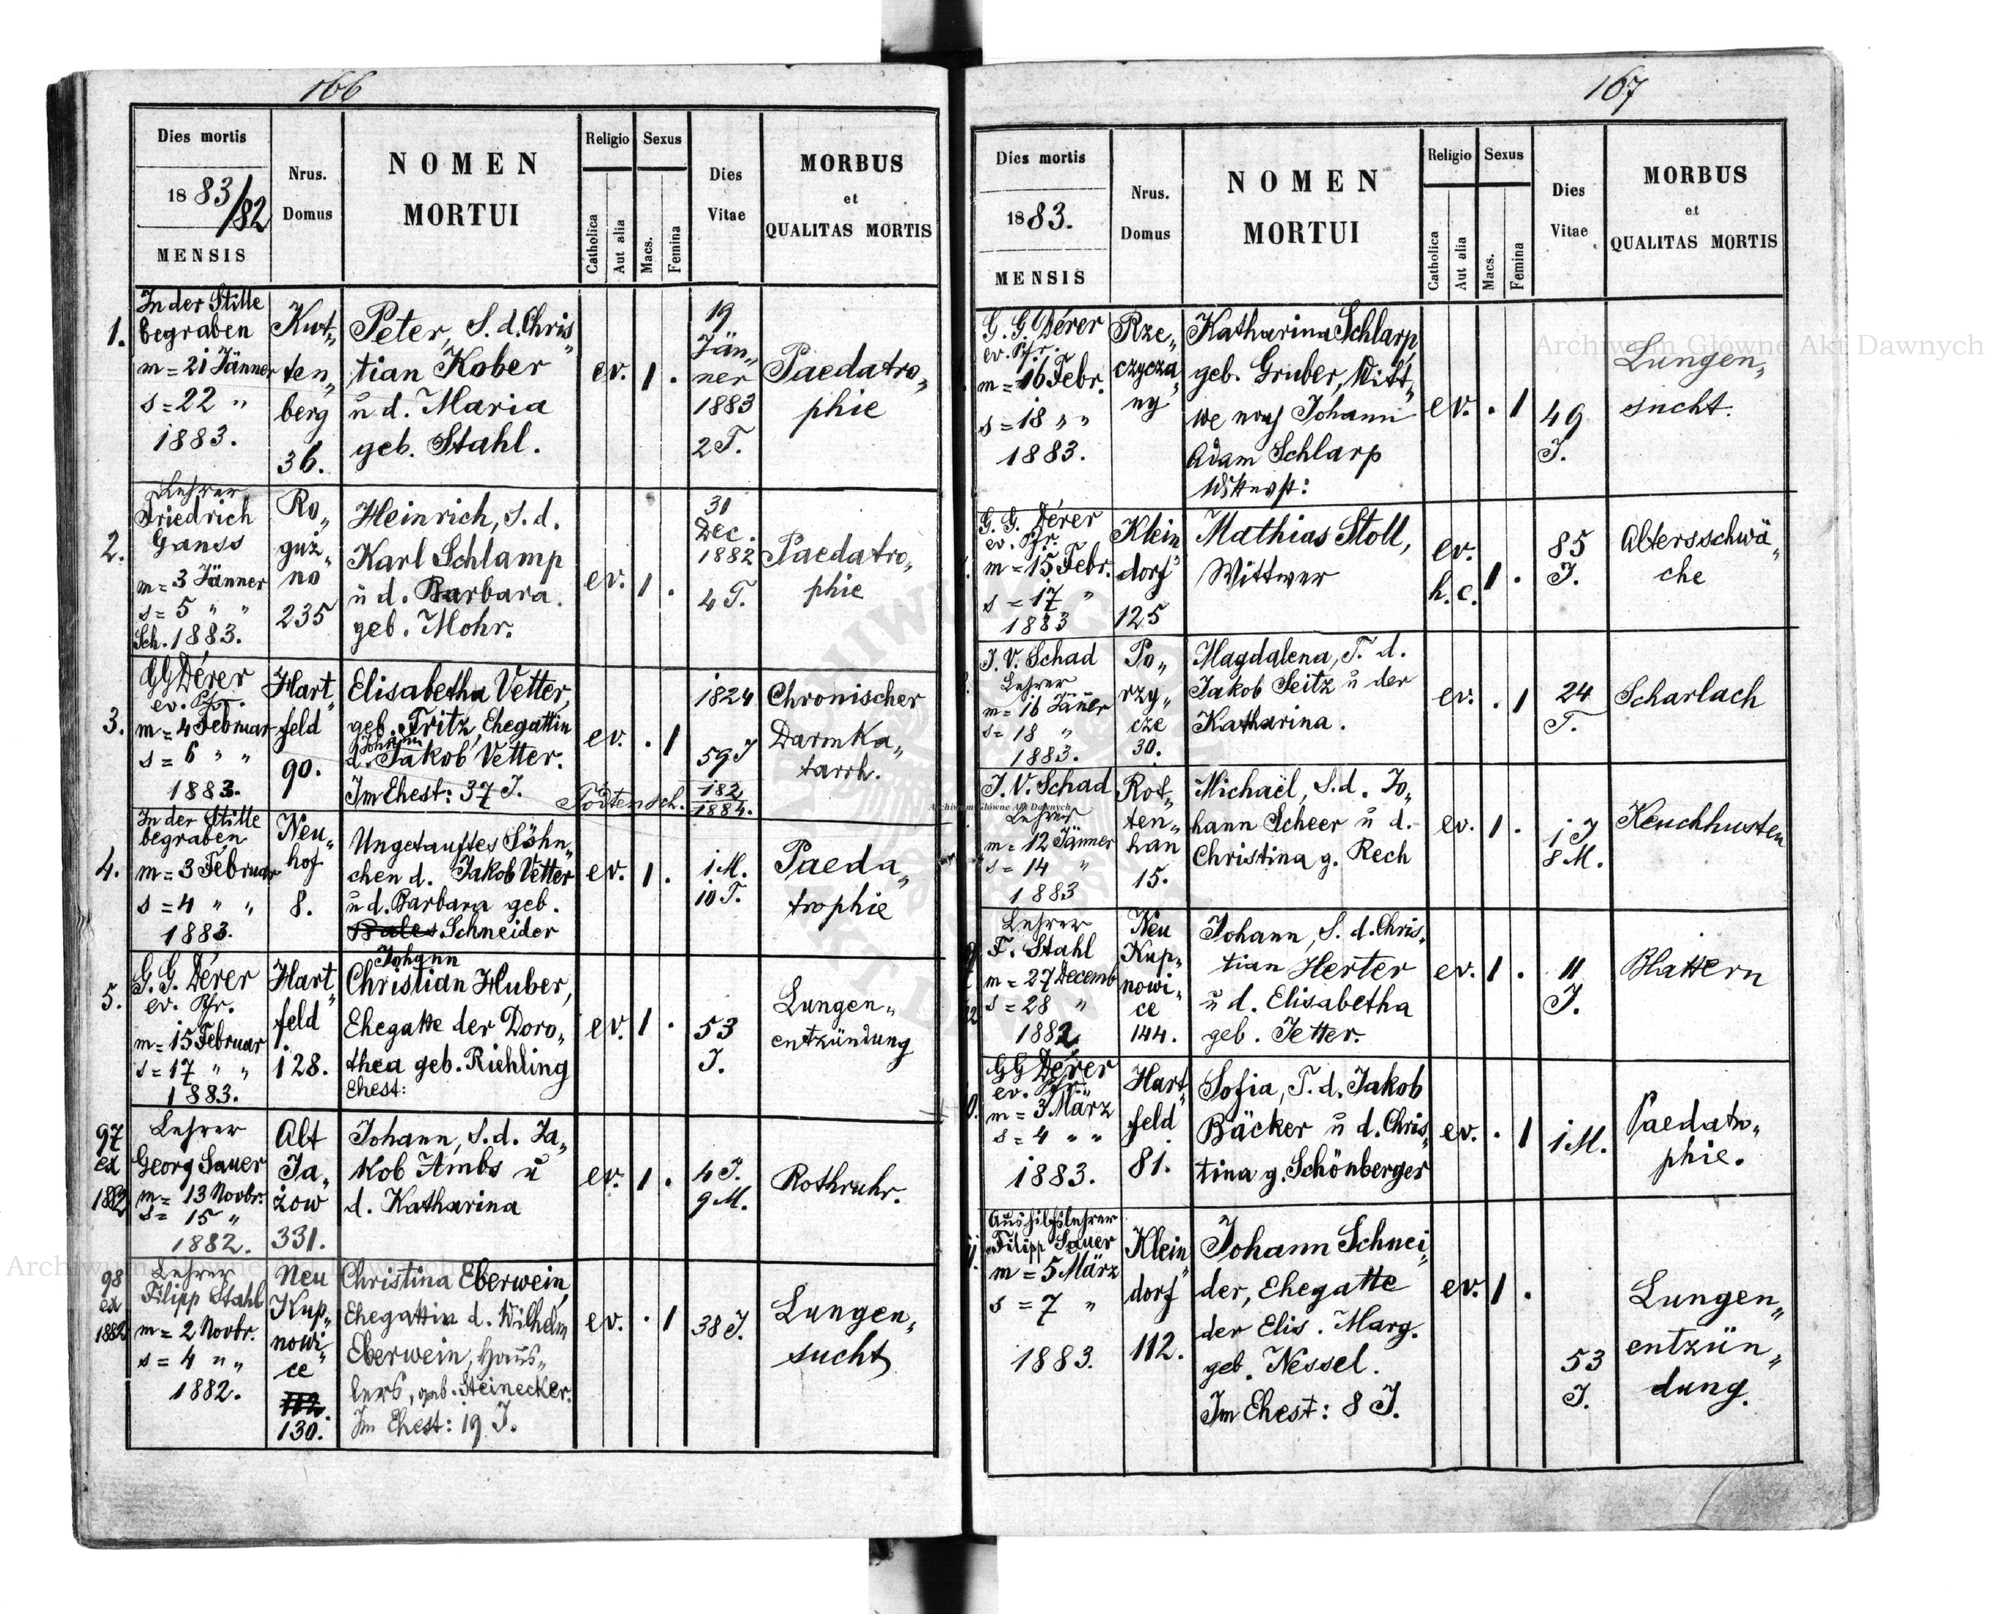 166
Dies mortis
1883/82
MENSIS
Nrus.
Domus
NOMEN
MORTUI
Religio
Catholica
Aut alia
Sexus
Macs.
Femina
Dies
Vitae
MORBUS
et
QUALITAS MORTIS
1.
In der Stille
begraben
m = 21 Jänner
s = 22 "
1883.
Kut„
ten„
berg
36.
Peter, S. d. Chris„
tian Kober
u d. Maria
geb. Stahl.
ev. 1 .
19
Jän„
ner
1883
2 T.
Paedatro„
phie
2.
Lehrer
Friedrich
Ganss
m = 3 Jänner
s = 5 " "
Sch. 1883.
Ro„
guź„
no
235
Heinrich, S. d.
Karl Schlamp
u d. Barbara
geb. Mohr.
ev. 1 .
31
Dec.
1882
4 T.
Paedatro„
phie
3.
GG Dérer
ev. Pfr.
m = 4 Februar
s = 6 " "
1883.
Hart„
feld
90.
Elisabetha Vetter,
geb. Fritz, Ehegattin
Johann
d. Jakob Vetter.
Im Ehest: 37 J.
ev. . 1
1824
59 J
182
1884.
Chronischer
Darmka„
tarrh.
4.
In der Stille
begraben
m = 3 Februar
s = 4 " "
1883.
Neu„
hof
8.
Ungetauftes Söhn„
chen d. Jakob Vetter
u d. Barbara geb.
Schneider
ev. 1 .
1 M.
10 T.
Paeda„
trophie
5.
G. G. Dérer
ev. Pfr.
m = 15 Februar
s = 17 " "
1883.
Hart„
feld
128.
Johann
Christian Huber,
Ehegatte der Doro„
thea geb. Riehling
Ehest:
ev. 1 .
53
J.
Lungen„
entzündung
97
ex
1882
Lehrer
Georg Sauer
m = 13 Novbr.
s = 15 "
1882.
Alt
Ja„
żow
331.
Johann, S. d. Ja„
kob Ambs u
d. Katharina
ev. 1 .
4 J.
9 M.
Rothruhr.
98
ex
1882
Lehrer
Filipp Stahl
m = 2 Novbr.
s = 4 " "
1882.
Neu
Kup„
nowi„
ce
130.
Christina Eberwein,
Ehegattin d. Wilhelm
Eberwein, Häus„
lers, geb. Steinecker.
Im Ehest: 19 J.
ev. . 1
38 J.
Lungen„
sucht
167
Dies mortis
1883.
MENSIS
Nrus.
Domus
NOMEN
MORTUI
Religio
Catholica
Aut alia
Sexus
Macs.
Femina
Dies
Vitae
MORBUS
et
QUALITAS MORTIS
G. G. Dérer
ev. Pfr.
m = 16 Febr.
s = 18 " "
1883.
Rze„
czycza„
ny
Katharina Schlarp,
geb. Gruber, Witt„
we nach Johann
Adam Schlarp
ev. . 1
49
J.
Lungen„
sucht.
G. G. Dérer
ev. Pfr.
m = 15 Febr.
s = 17 "
1883
Klein
dorf
125
Mathias Stoll,
Wittwer
ev.
h. c.
1 .
85
J.
Altersschwä„
che
J. V. Schad
Lehrer
m = 16 Jäner
s = 18 "
1883.
Po„
rzy„
cze
30.
Magdalena, T. d.
Jakob Seitz u der
Katharina.
ev. . 1
24
T.
Scharlach
J. V. Schad
Lehrer
m = 12 Jänner
s = 14 "
1883
Rot„
ten„
han
15.
Michaël, S. d. Jo„
hann Scheer u d.
Christina g. Rech
ev. 1 .
1 J
8 M.
Keuchhusten
Lehrer
F. Stahl
m = 27 Decemb
s = 28 "
1882
Neu
Kup„
nowi„
ce
144.
Johann, S. d. Chris„
tian Herter
u d. Elisabetha
geb. Jetter.
ev. 1 .
11
J.
Blattern
GG Dérer
ev. Pfr.
m = 3 März
s = 4 " "
1883.
Hart„
feld
81.
Sofia, T. d. Jakob
Bäcker u d. Chris„
tina g. Schönberger
ev. . 1
1 M.
Paedatro„
phie.
Aushilfslehrer
Filipp Sauer
m = 5 März
s = 7 "
1883.
Klein„
dorf
112.
Johann Schnei„
der, Ehegatte
der Elis. Marg.
geb. Nessel.
Im Ehest: 8 J.
ev. 1 .
53
J.
Lungen„
entzün„
dung.
Archiwum Główne Akt Dawnych
Archiwum Główne Akt Dawnych
Archiwum Główne Akt Dawnych